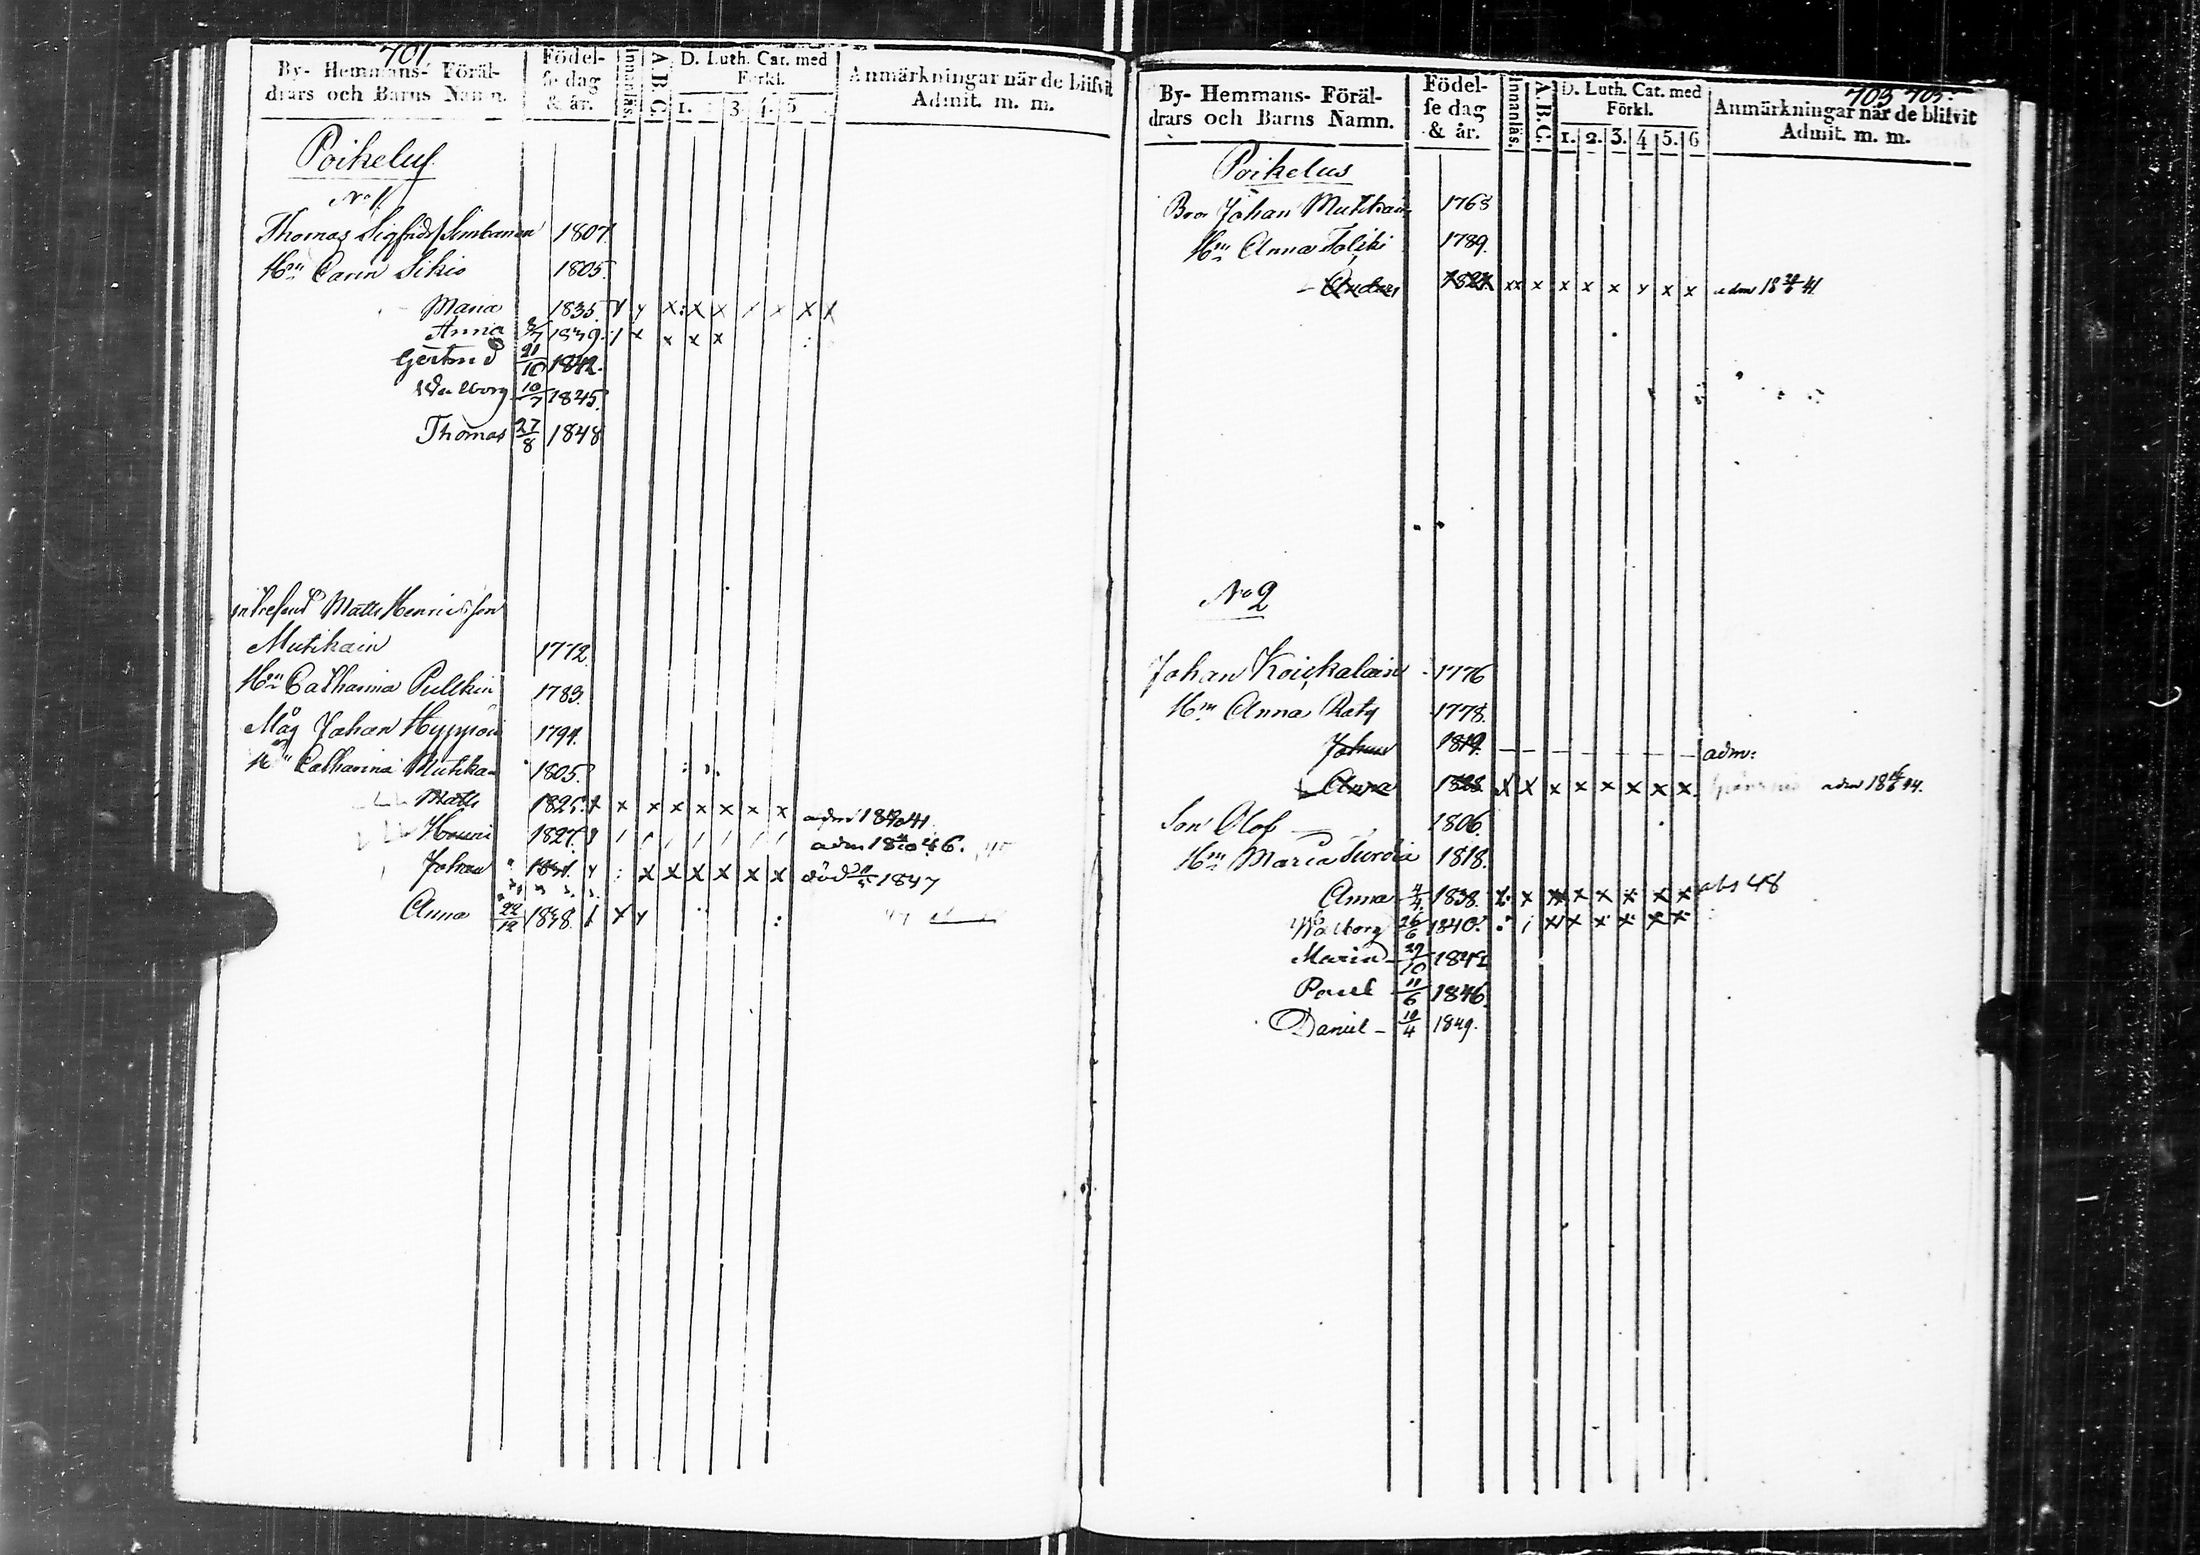 701
By- Hemmans- Föräl-
drars och Barns Namn.
Födel-
se dag
& år.
Innanläs.
A.B.C.
D. Luth. Cat. med
Förkl.
1. 3 4. 5
Anmärkningar når de blifvit
Admit. m. m.
Poikelus
No 1.
Thomas Sigfrids 1807.
Hn Carin Sikiö 1805.
Maria 1835. x x x x x x x x
Anna 1839. x x x x
Gertrud 21/10 1842.
Walborg 10/7 1845.
Thomas 27/8 1848
Matts Henricsson
Mutikain 1772.
Hn Catharina Pulkin 1783.
Måg Johan Hyppöin 1794.
Hn Catharina Mutika 1805.
Matts 1825. x x x x x x x adm
Henric 1827. / / / / / / / adm 46.
Johan 1831. x x x x x x död 1847
Anna 22/12 1838. x
703 705.
By- Hemmans- Föräl-
drars och Barns Namn.
Födel-
se dag
& år.
Innanläs.
A.B.C.
D. Luth. Cat. med
Förkl.
1. 2. 3. 4 5. 6
Anmärkningar når de blifvit
Admit. m. m.
Poikelus
Bror Johan Mutikain 1763
Hn Anna Tolski 1789.
xx x x x x x x x adm 41
No 2
Johan Koiskalain 1776
Hn Anna Raty 1778.
Johan 1819. — — — — — — — — adm:
Anna 1828. x x x x x x x x adm 44.
Son Olof 1806.
Hn Maria 1818.
Anna 4/4 1838. x x x x x x x x abs 48
Walborg 26/6 1840. x x x x x x
Maria 1842
Paul 11/6 1846.
Daniel — 10/4 1849.